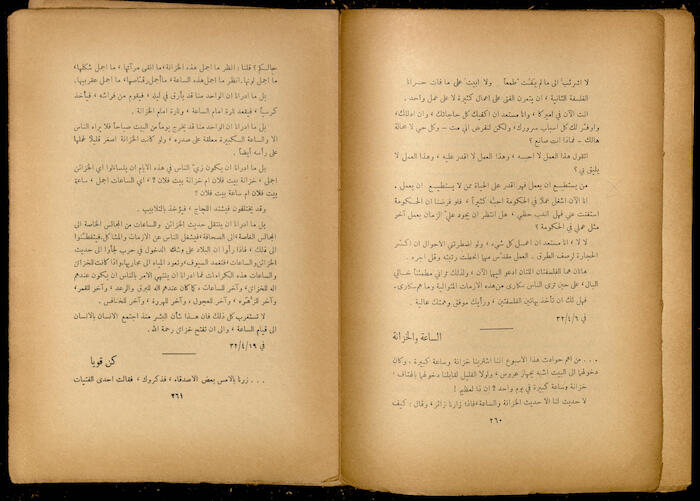 لا اشرئب الى ما لم يفت طمعاً ولا ابيت على ما فات حسرانا
الفلسفة الثانية ؛ ان يتمرن الفتى على اعمال كثيرة لا على عمل واحد .
انت الآن في اميركا ، وانا مستعد ان اكفيك كل حاجاتك ، وان ادللك ،
واوفر لك كل اسباب سرورك، ولكن لنفرض اني مت – وكل حي لا محالة
هالك – فماذا انت صانع ؟
اتقول هذا العمل لا احسنه ، وهذا العمل لا اقدر عليه ، وهذا العمل لا
يليق بي ؟
من يستطيع ان يعمل فهو اقدر على الحياة ممن لا يستطيع ان يعمل .
انا الآن اشغل عملاً في الحكومة احبه كثيراً ، فلو فرضنا ان الحكومة
استغنت عني فهل اندب حظي ، هل انتظر ان يجود علي الزمان بعمل آخر
مثل عملي في الحكومة ؟
لا ! انا مستعد ان اعمل كل شيء ، ولو اضطرتني الاحوال ان اكسر
الحجارة لرصف الطرق . العمل مقدس مها انحطت رتبته وقل اجره .
هاتان هما الفلسفتان اللتان ادعو اليها الآن ، ولذلك تراني مطمئناً خالي
البال، على حين ترى الناس سكارى من هذه الازمات المتوالية وما هم سكارى.
فهل لك ان تأخذ بهاتين الفلسفتين ، ورأيك موفق وهمتك عالية .
في ٣٢/٤/٦
الساعة والخزانة
. . . من اهم حوادث هذا الاسبوع اننا اشترينا خزانة وساعة كبيرة ، وكان
دخولهما الى البيت اشبه بجهاز عروس ، ولولا القليل لقابلنا دخولها بالهتاف ؛
خزانة وساعة كبيرة في يوم واحد ؟ ان ذا لعظيم !
لا حديث لنا الا حديث الخزانة والساعة، فاذا زارنا زائر، وقال : كيف
٢٦٠
حالكم؟ قلنا : انظر ما اجمل هذه الخزانة، ما انقى مرآتها، ما اجمل شكلها،
ما اجمل لونها. انظر ما اجمل هذه الساعة، ما اجمل رقاصها، ما اجمل عقربيها.
بل ما ادرانا ان الواحد منا قد يأرق في ليله ، فيقوم من فراشه ، فيأخذ
كرسياً ، فيقعد تارة امام الساعة ، وتارة امام الخزانة .
بل ما ادرانا ان الواحد منا قد يخرج يوماً من البيت صباحاً فلا يراه الناس
الا والساعة الكبيرة معلقة على صدره ، ولو كانت الخزانة اصغر قليلاً لحملها
على رأسه أيضاً .
بل ما ادرانا ان يكون زيّ الناس في هذه الايام ان يتساءلوا اي الخزائن
اجمل ، خزانة بيت فلان ام خزانة بيت فلان ؟ ، اي الساعات اجمل ، ساعة
بيت فلان ام ساعة بيت فلان ؟
وقد يختلفون فيشتد اللجاج ، فيؤخذ بالتلابيب .
بل ما ادرانا ان ينتقل حديث الخزائن والساعات من المجالس الخاصة الى
المجالس الغاصة، الى الصحافة، فيشغل الناس عن الازمات والمشاكل، فيتفطنوا
الى ذلك ، فاذا رأوا ان البلاد على وشك الدخول في حرب لجأوا الى حديث
الخزائن والساعات، فتغمد السيوف، وتعود المياه الى مجاريها، واذا كانت للخزائن
والساعات هذه الكرامات فما ادرانا ان ينتهي الامر بالناس ان يكون عندهم
اله للخزائن ، وآخر للساعات ، كما كان عندهم اله للبرق والرعد ، وآخر للقمر،
وآخر للزهرة ، وآخر للعجول ، وآخر للهررة ، وآخر للخنافس .
لا تستغرب كل ذلك فان هذا شأن البشر منذ اجتمع الانسان بالانسان
الى قيام الساعة ، والى ان تفتح خزائن رحمة الله .
في ٣٢/٤/١٩
كن قويا
. . . زرنا بالامس بعض الاصدقاء، فذكروك ، فقالت احدى الفتيات
٢٦١